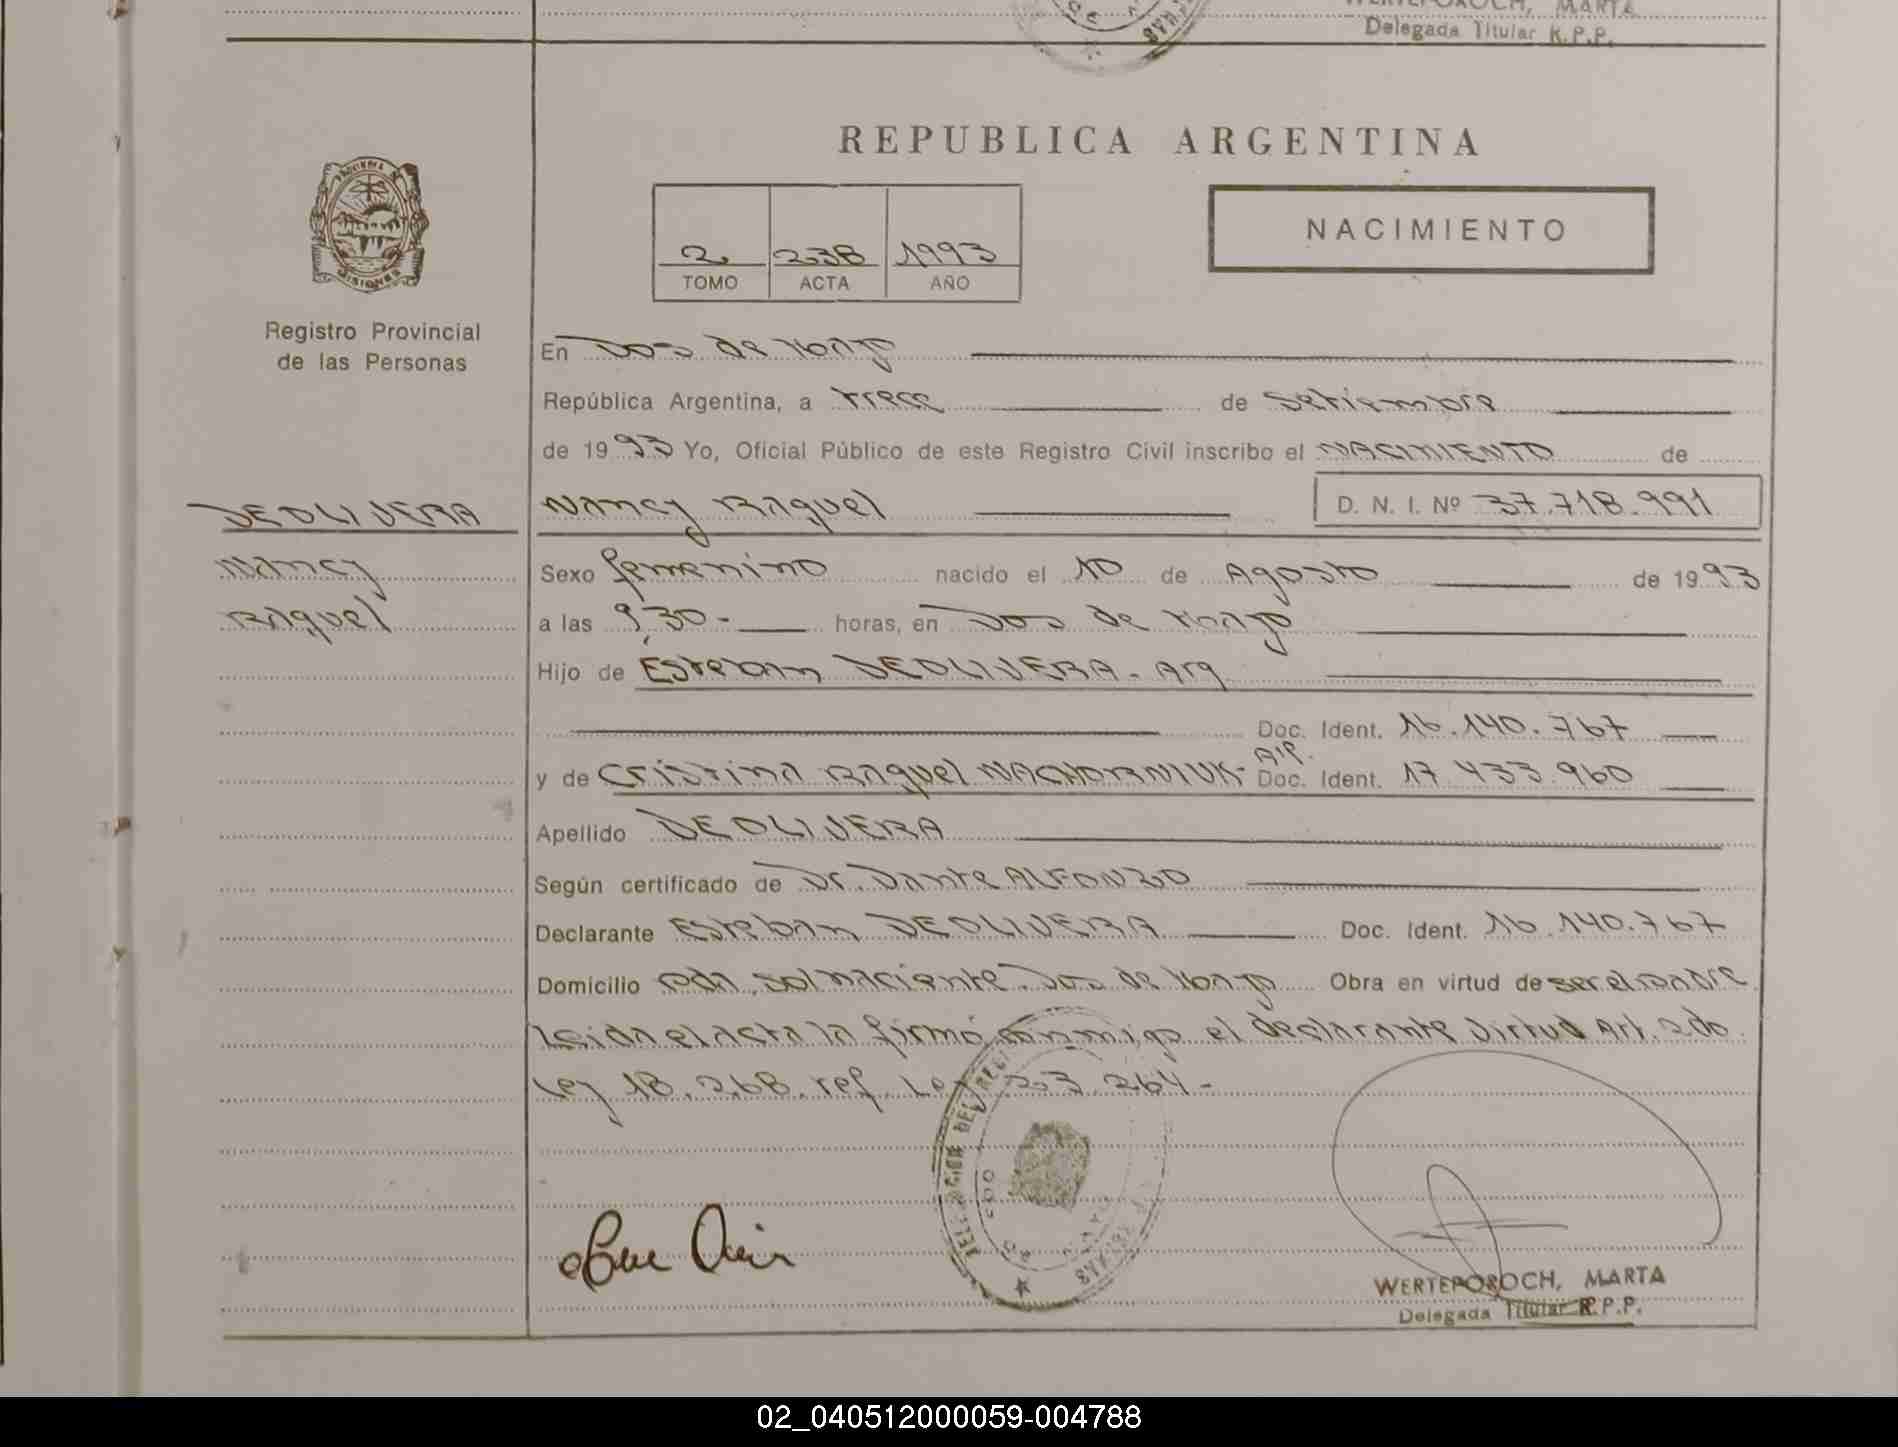 WERTEPOROCH, MARTA
Delegada Titular R.P.P.
REPUBLICA ARGENTINA
NACIMIENTO
2 238 1993
TOMO ACTA AÑO
Registro Provincial
de las Personas
En Dos de Mayo
República Argentina, a trece de setiembre
de 1993 Yo, Oficial Público de este Registro Civil inscribo el NACIMIENTO de
DEOLIVERA Nancy Raquel D. N. I. Nº 37.718.991
Nancy
Raquel
Sexo femenino nacido el 10 de Agosto de 1993
a las 9,30- horas, en Dos de Mayo
Hijo de Esteban DEOLIVERA - Arg
Doc. Ident. 16.140.767
y de Cristina Raquel NACHORNIUK- Arg. Doc. Ident. 17.433.960
Apellido DEOLIVERA
Según certificado de Dr. Dante ALFONZO
Declarante Esteban DEOLIVERA Doc. Ident. 16.140.767
Domicilio Sol naciente. Dos de Mayo Obra en virtud de ser el padre
Leida el acta la firmó conmigo el declarante Virtud Art. 2do.
Ley 18.268. ref. Ley 23.264.-
WERTEPOROCH, MARTA
Delegada Titular R.P.P.
02_040512000059-004788